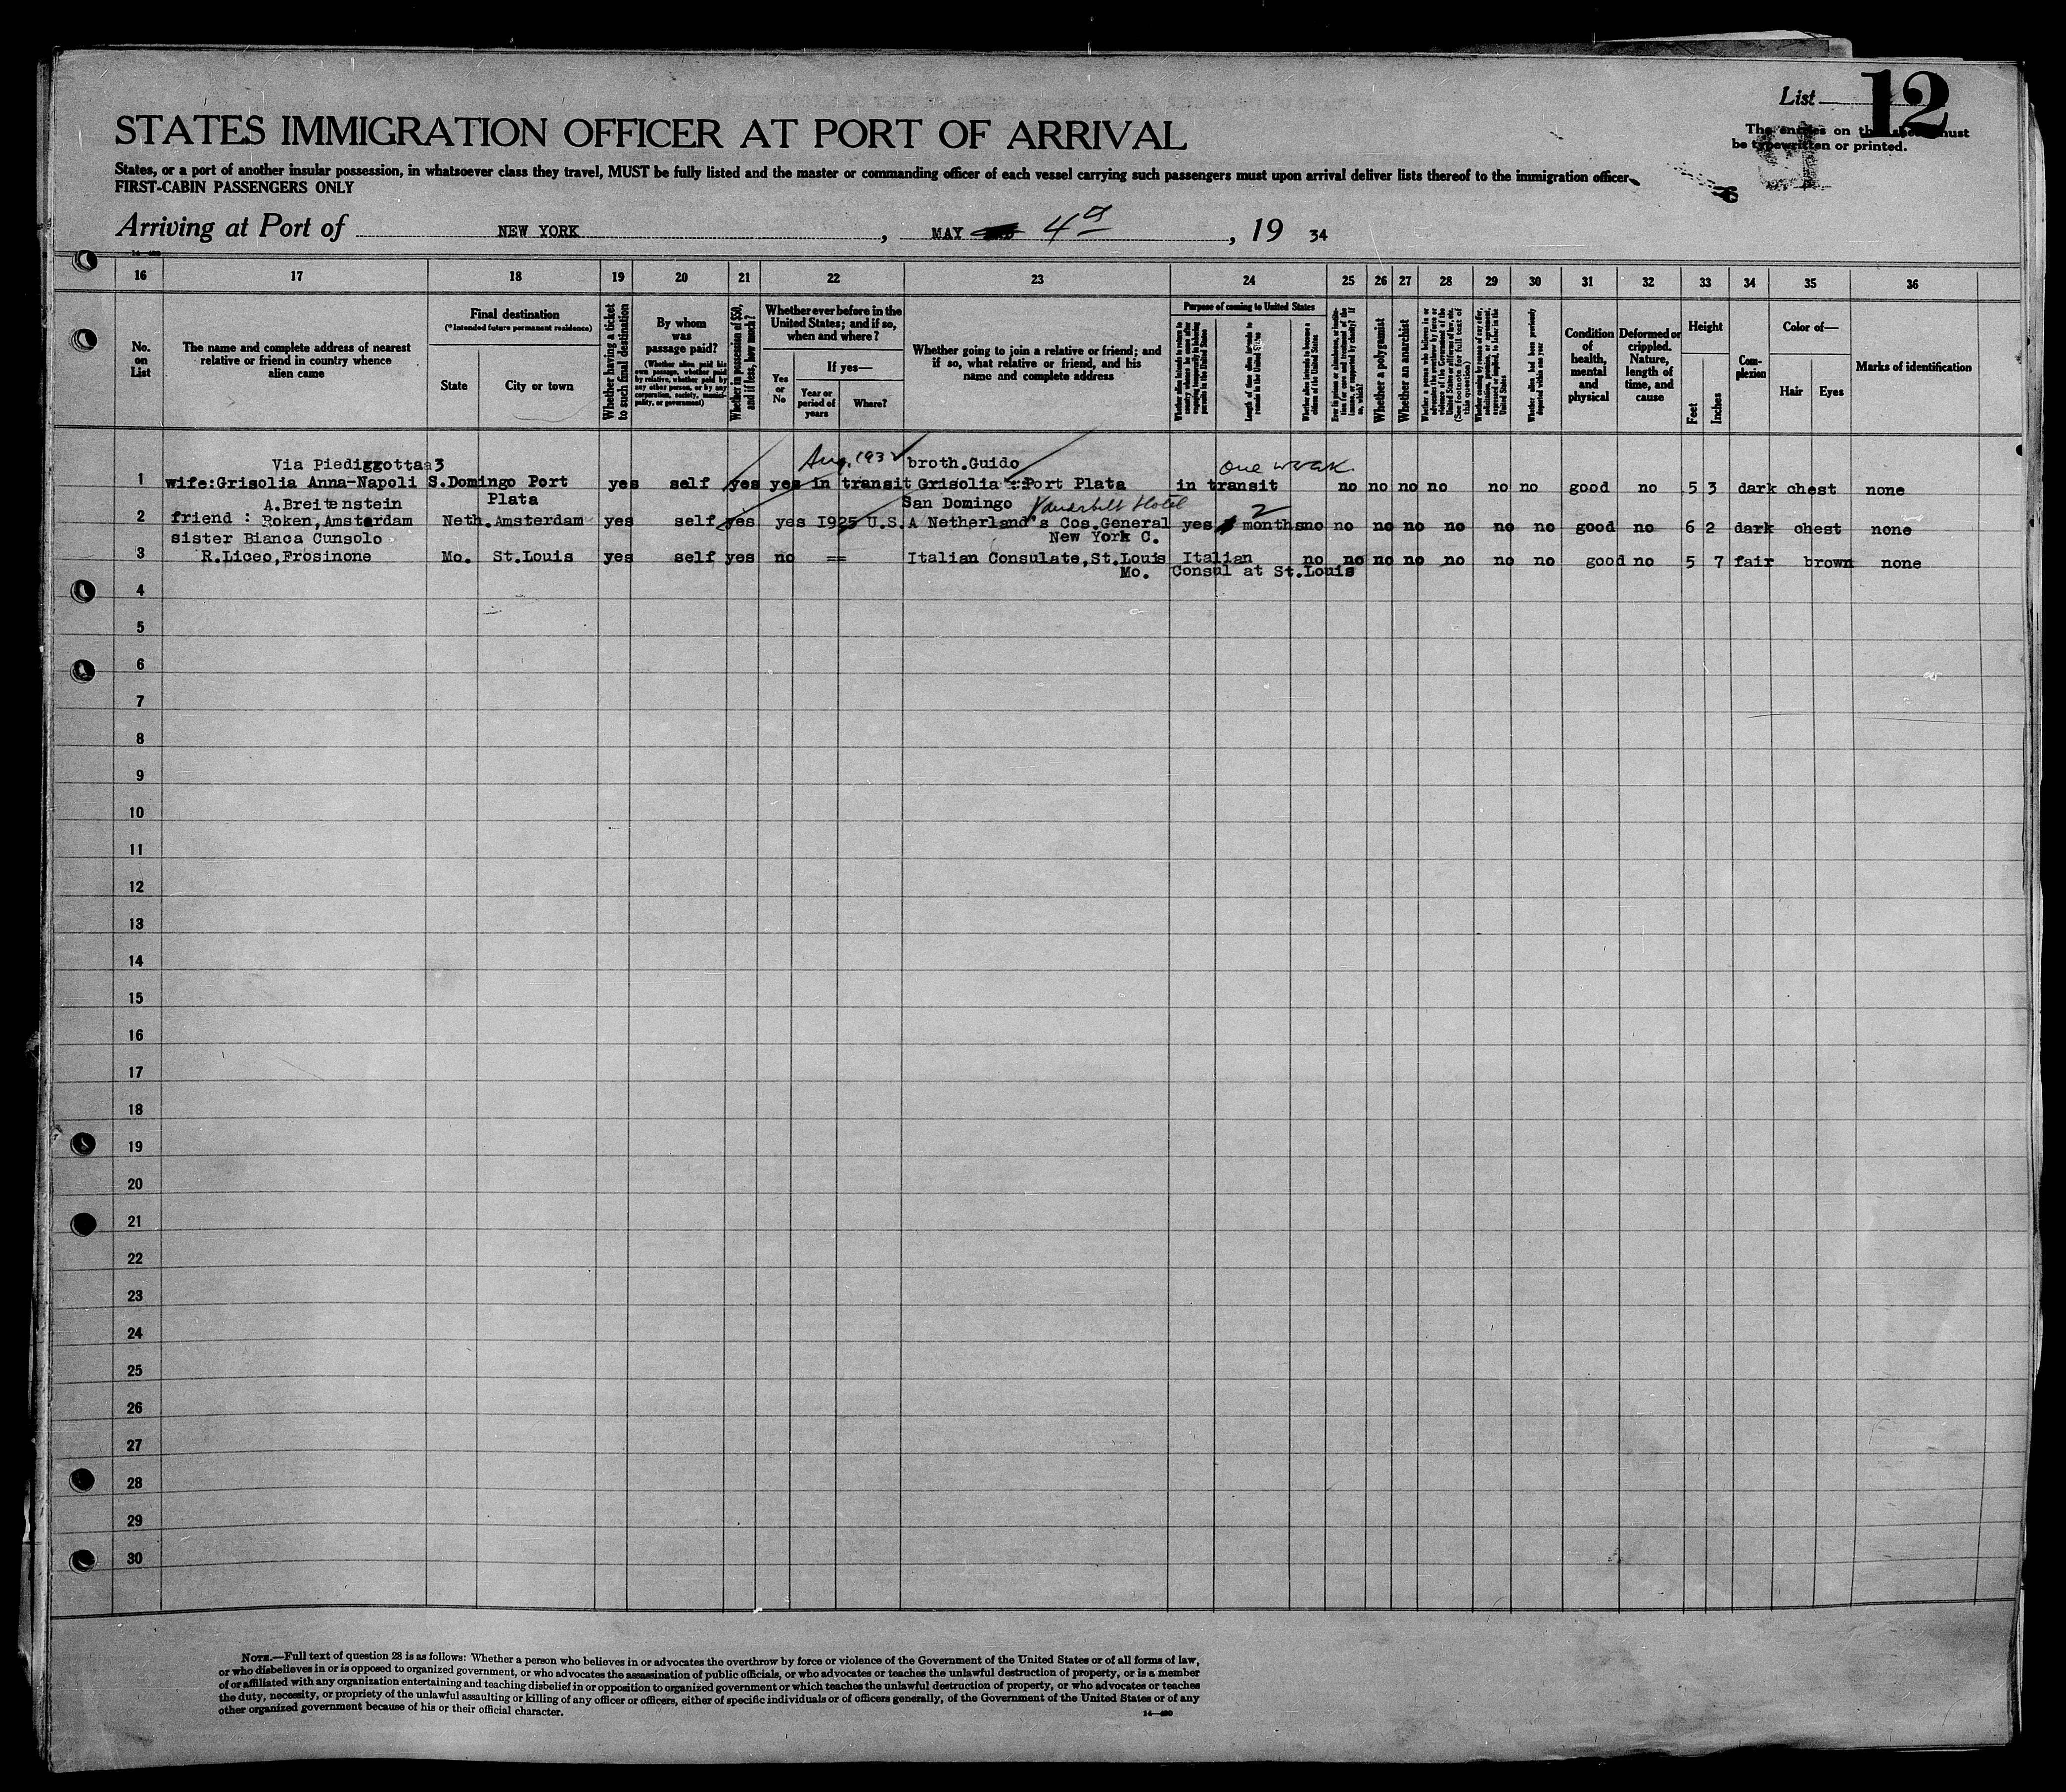 List 12
The entries on this sheet must
be typewritten or printed.
STATES IMMIGRATION OFFICER AT PORT OF ARRIVAL
States, or a port of another insular possession, in whatsoever class they travel, MUST be fully listed and the master or commanding officer of each vessel carrying such passengers must upon arrival deliver lists thereof to the immigration officer
FIRST-CABIN PASSENGERS ONLY
Arriving at Port of NEW YORK, MAY 4th, 19 34
16 17 18 19 20 21 22 23 24 25 26 27 28 29 30 31 32 33 34 35 36
No. on List
The name and complete address of nearest relative or friend in country whence alien came
Final destination
(*Intended future permanent residence)
State
City or town
Whether having a ticket to such final destination
By whom was passage paid?
(Whether alien paid his own passage, whether paid by relative, whether paid by any other person, or by any corporation, society, municipality, or government)
Whether in possession of $50, and if less, how much?
Whether ever before in the United States; and if so, when and where?
Yes or No
If yes—
Year or period of years
Where?
Whether going to join a relative or friend; and if so, what relative or friend, and his name and complete address
Purpose of coming to United States
Length of time alien intends to remain in the United States
Whether alien intends to become a citizen of the United States
Whether a polygamist
Whether an anarchist
Whether alien had been previously deported within one year
Condition of health, mental and physical
Deformed or crippled. Nature, length of time, and cause
Height
Feet
Inches
Complexion
Color of—
Hair
Eyes
Marks of identification
Via Piediggotta 3 Aug. 1932 broth.Guido one week
1 wife:Grisolia Anna-Napoli S.Domingo Port yes self yes yes in transit Grisolia : Port Plata in transit no no no no no no good no 5 3 dark chest none
A.Breitenstein Plata San Domingo Vanderbilt Hotel 2
2 friend : Roken,Amsterdam Neth.Amsterdam yes self yes yes 1925 U.S.A Netherland's Cos.General yes months no no no no no no no good no 6 2 dark chest none
sister Bianca Cunsolo New York C.
3 R.Liceo,Frosinone Mo. St.Louis yes self yes no == Italian Consulate,St.Louis Italian no no no no no no no good no 5 7 fair brown none
Mo. Consul at St.Louis
4
5
6
7
8
9
10
11
12
13
14
15
16
17
18
19
20
21
22
23
24
25
26
27
28
29
30
NOTE.—Full text of question 28 is as follows: Whether a person who believes in or advocates the overthrow by force or violence of the Government of the United States or of all forms of law,
or who disbelieves in or is opposed to organized government, or who advocates the assassination of public officials, or who advocates or teaches the unlawful destruction of property, or is a member
of or affiliated with any organization entertaining and teaching disbelief in or opposition to organized government or which teaches the unlawful destruction of property, or who advocates or teaches
the duty, necessity, or propriety of the unlawful assaulting or killing of any officer or officers, either of specific individuals or of officers generally, of the Government of the United States or of any
other organized government because of his or their official character.